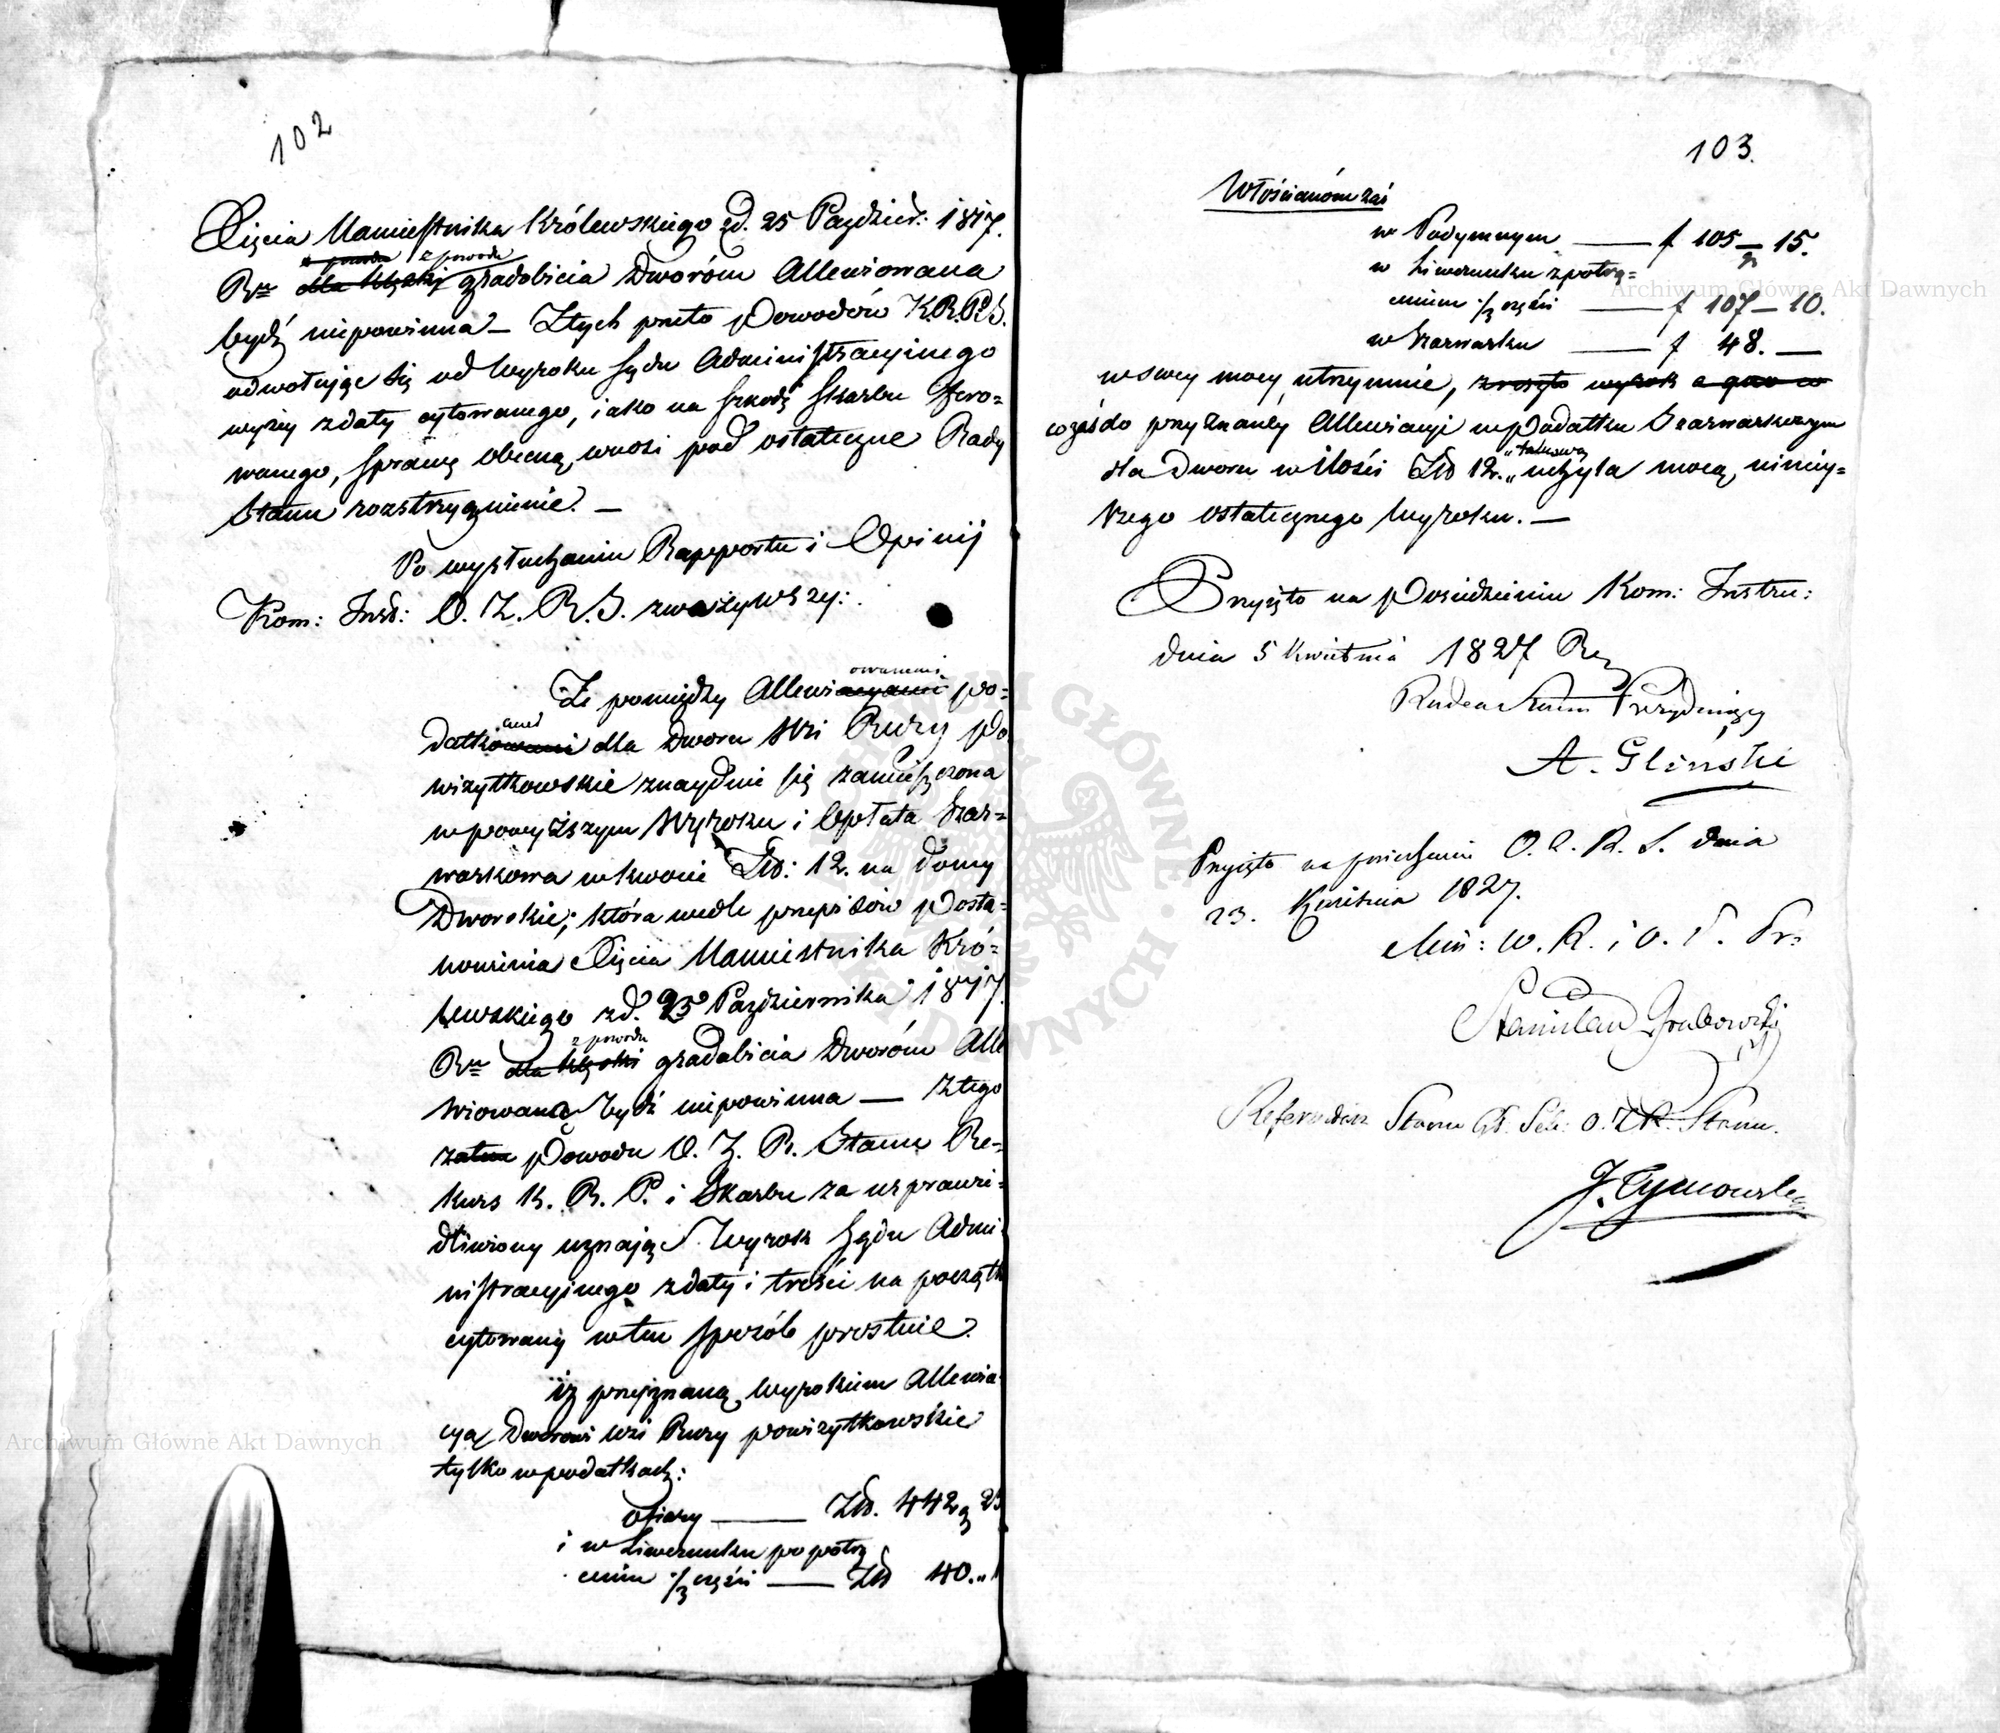 102
Xięcia Namiestnika Królewskiego zd. 25 Paździer: 1817.
z powodu
Ru dla klęski gradobicia Dworóm Allewiowana
bydź niepowinna — Ztych przeto Powodów K.R.P.i S.
odwołując się od Wyroku Sądu Administracyjnego
wyżey zdaty cytowanego, iako na szkodę Skarbu fero=
wanego, Sprawę obecną wnosi pod ostateczne Rady
Stanu rozstrzygnienie. —
Po wysłuchaniu Rapportu i Opinij
Kom: Inst: O. Z. R. S. zważywszy:
owaniami
Że pomiędzy Allewiacyami po=
datkowemi dla Dworu Wsi Rury Po
wizytkowskie znayduie się zamieszczona
w powyższym Wyroku i Opłata Szar=
warkowa w kwocie Złp: 12. na Domy
Dworskie; która wedle przepisów Posta=
nowienia Xięcia Namiestnika Kró=
lewskiego zd. 25 Października 1817.
z powodu
Ru dla klęski gradobicia Dworóm Alle
wiowaną bydź niepowinna — Ztego
zatem Powodu O. Z. R. Stanu Re=
kurs K. R. P. i Skarbu za usprawie=
dliwiony uznając Wyrok Sądu Admi
nistracyjnego zdaty i treści na począth
cytowany w ten sposób prostuie.
iż przyznaną Wyrokiem Allewia
cyą Dworowi Wsi Rury powizytkowskie
tylko w podatkach:
Ofiary — Złp. 442 g 25
i w Liwerunku po potrą
ceniu 1/3 części — Złp 40.
103.
Włościanóm zaś
w Podymnym — f 105 — 15.
gr
w Liwerunku z potrą=
ceniem 1/3 części — f 107 — 10.
w Szarwarku — f 48. —
w swey mocy utrzymuie,
co zaś do przyznaney Allewiacyi w Podatku Szarwarkowym
takową
dla Dworu w Ilości Złp 12. uchyla mocą niniey=
szego ostatecznego Wyroku. —
Przyięto na Posiedzeniu Kom: Instru:
dnia 5 Kwietnia 1827 R.
Radca Stanu Prezyduiący
A. Gliński
Przyięto na posiedzeniu O. Z. R. S. dnia
23. Kwietnia 1827.
Min: W. R. i O. P. Pr.
Stanisław Grabowski
Referendarz Stanu Gł. Sek: O. Z. R. Stanu.
J. Tymowski
Archiwum Główne Akt Dawnych
Archiwum Główne Akt Dawnych
ARCHIWUM GŁÓWNE AKT DAWNYCH